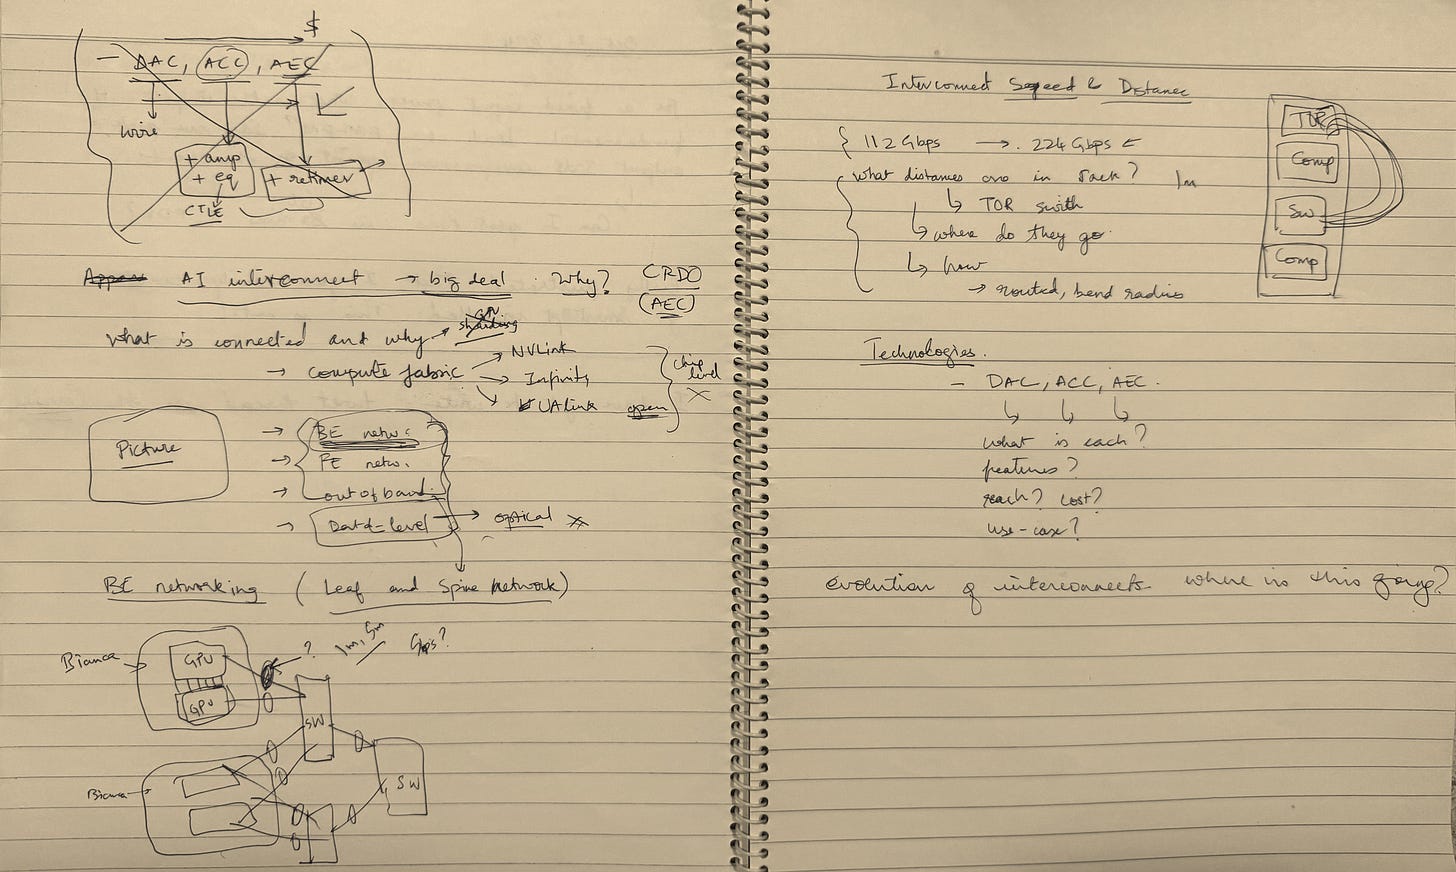 $
- DAC, ACC, AEC
wire
+ amp
+ eq
+ retimer
CTLE
AI interconnect → big deal. Why?
CRDO
(AEC)
what is connected and why →
→ compute fabric
NVLink
Infinity
UALink open
chip level
Picture
→ BE netw.
→ FE netw.
→ out of band.
→ Data-level → optical
BE networking (Leaf and Spine Network)
Bianca
GPU
GPU
? 1m, 5m Gbps?
SW
SW
Bianca
Interconnect Speed & Distance
112 Gbps → 224 Gbps
what distances are in rack? 1m
↳ TOR swith
↳ where do they go
↳ how
→ routed, bend radius
TOR
Comp
SW
Comp
Technologies.
- DAC, ACC, AEC.
what is each?
features?
reach? cost?
use-case?
evolution of interconnects where is this going?